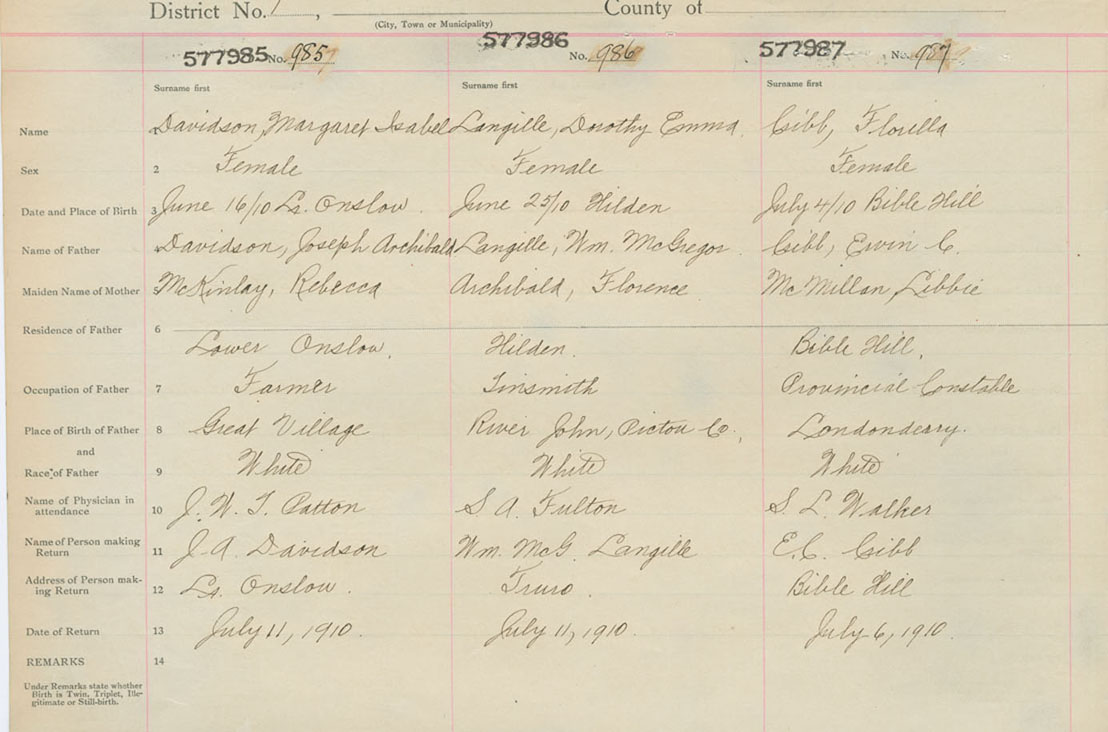 District No. 1, County of
(City, Town or Municipality)
577985 No. 985 577986 No. 986 577987 No. 987
Surname first Surname first Surname first
Name 1 Davidson, Margaret Isabel Langille, Dorothy Emma Gibb, Florella
Sex 2 Female Female Female
Date and Place of Birth 3 June 16/10 Lr. Onslow. June 25/10 Hilden July 4/10 Bible Hill
Name of Father 4 Davidson, Joseph Archibald Langille, Wm. McGregor. Gibb, Ervin C.
Maiden Name of Mother 5 McKinlay, Rebecca Archibald, Florence McMillan, Libbie
Residence of Father 6
Lower Onslow. Hilden. Bible Hill.
Occupation of Father 7 Farmer Tinsmith Provincial Constable
Place of Birth of Father 8 Great Village River John, Pictou Co., Londonderry.
and
Race of Father 9 White White White
Name of Physician in
attendance 10 J. W. T. Patton S. A. Fulton S. L. Walker
Name of Person making
Return 11 J. A. Davidson Wm. McG. Langille E. C. Gibb
Address of Person mak-
ing Return 12 Lr. Onslow. Truro. Bible Hill
Date of Return 13 July 11, 1910. July 11, 1910. July 6, 1910.
REMARKS 14
Under Remarks state whether
Birth is Twin, Triplet, Ille-
gitimate or Still-birth.